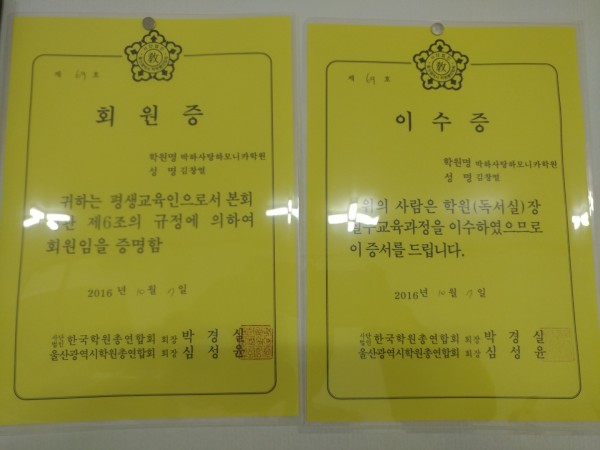 제 69 호
회원증
학원명 박하사탕하모니카학원
성 명 김창열
귀하는 평생교육인으로서 본회
관 제6조의 규정에 의하여
회원임을 증명함
2016 년 10 월 17 일
사단법인 한국학원총연합회 회장 박경실
울산광역시학원총연합회 회장 심성윤
제 69 호
이수증
학원명 박하사탕하모니카학원
성 명 김창열
위의 사람은 학원(독서실)장
필수교육과정을 이수하였으므로
이 증서를 드립니다.
2016년 10 월 17 일
사단법인 한국학원총연합회 회장 박경실
울산광역시학원총연합회 회장 심성윤